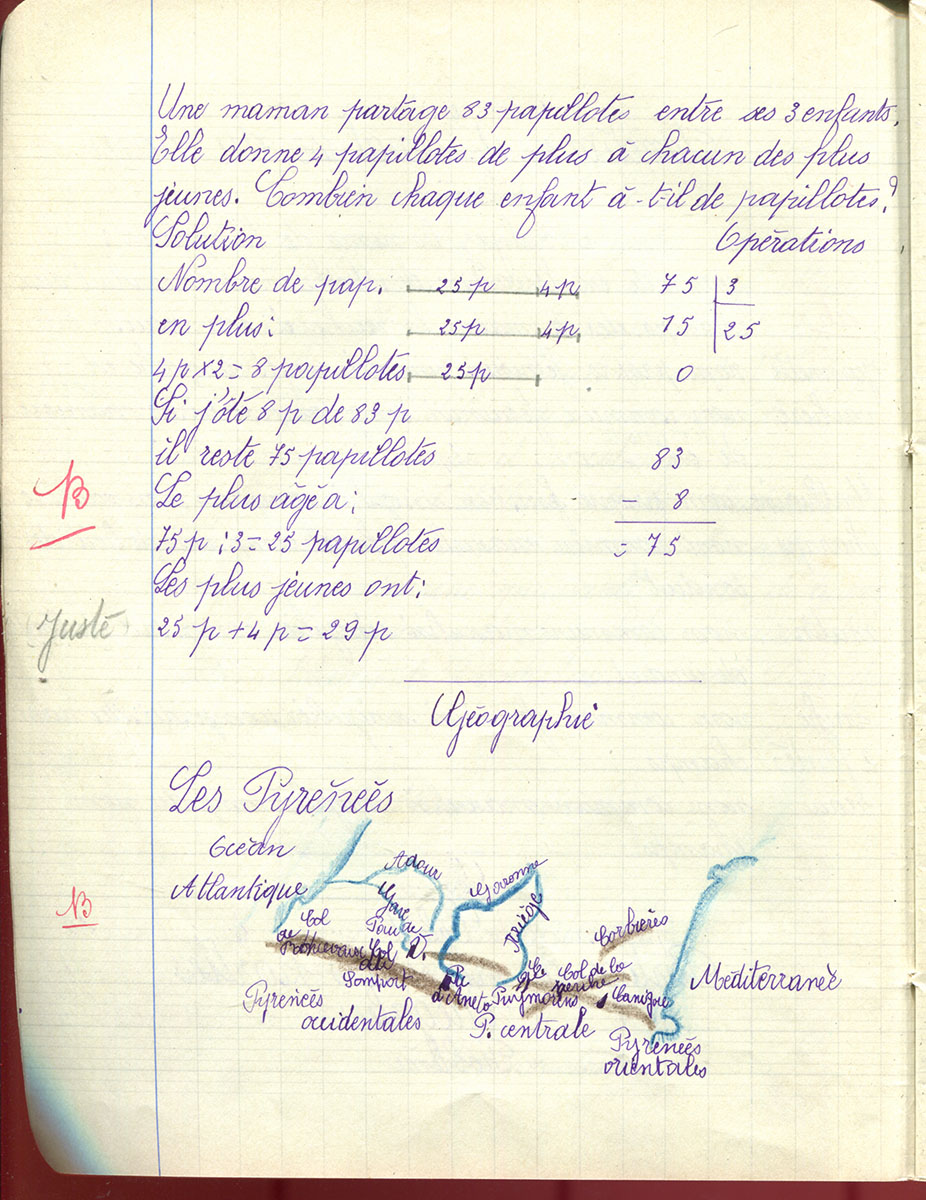 Une maman partage 83 papillotes entre ses 3 enfants.
Elle donne 4 papillotes de plus à chacun des plus
jeunes. Combien chaque enfant à-t-il de papillotes?
Solution
Opérations
Nombre de pap.
25p 4p
75 3
en plus:
25p 4p
15 25
4p×2=8 papillotes
25p
0
Si j'ôte 8p de 83p
il reste 75 papillotes
83
B
Le plus âgé a:
- 8
75p:3=25 papillotes
= 75
Les plus jeunes ont:
Juste
25p+4p=29p
Géographie
Les Pyrénées
Océan
Atlantique
Adour
Garonne
Gave
de
Pau
Ariège
B
Col
de Roncevaux
Col
du
Somport
Corbières
Pic
d'Aneto
Col de
Puymorens
Col de la
perche
Canigou
Méditerranée
Pyrénées
occidentales
P. centrale
Pyrénées
orientales